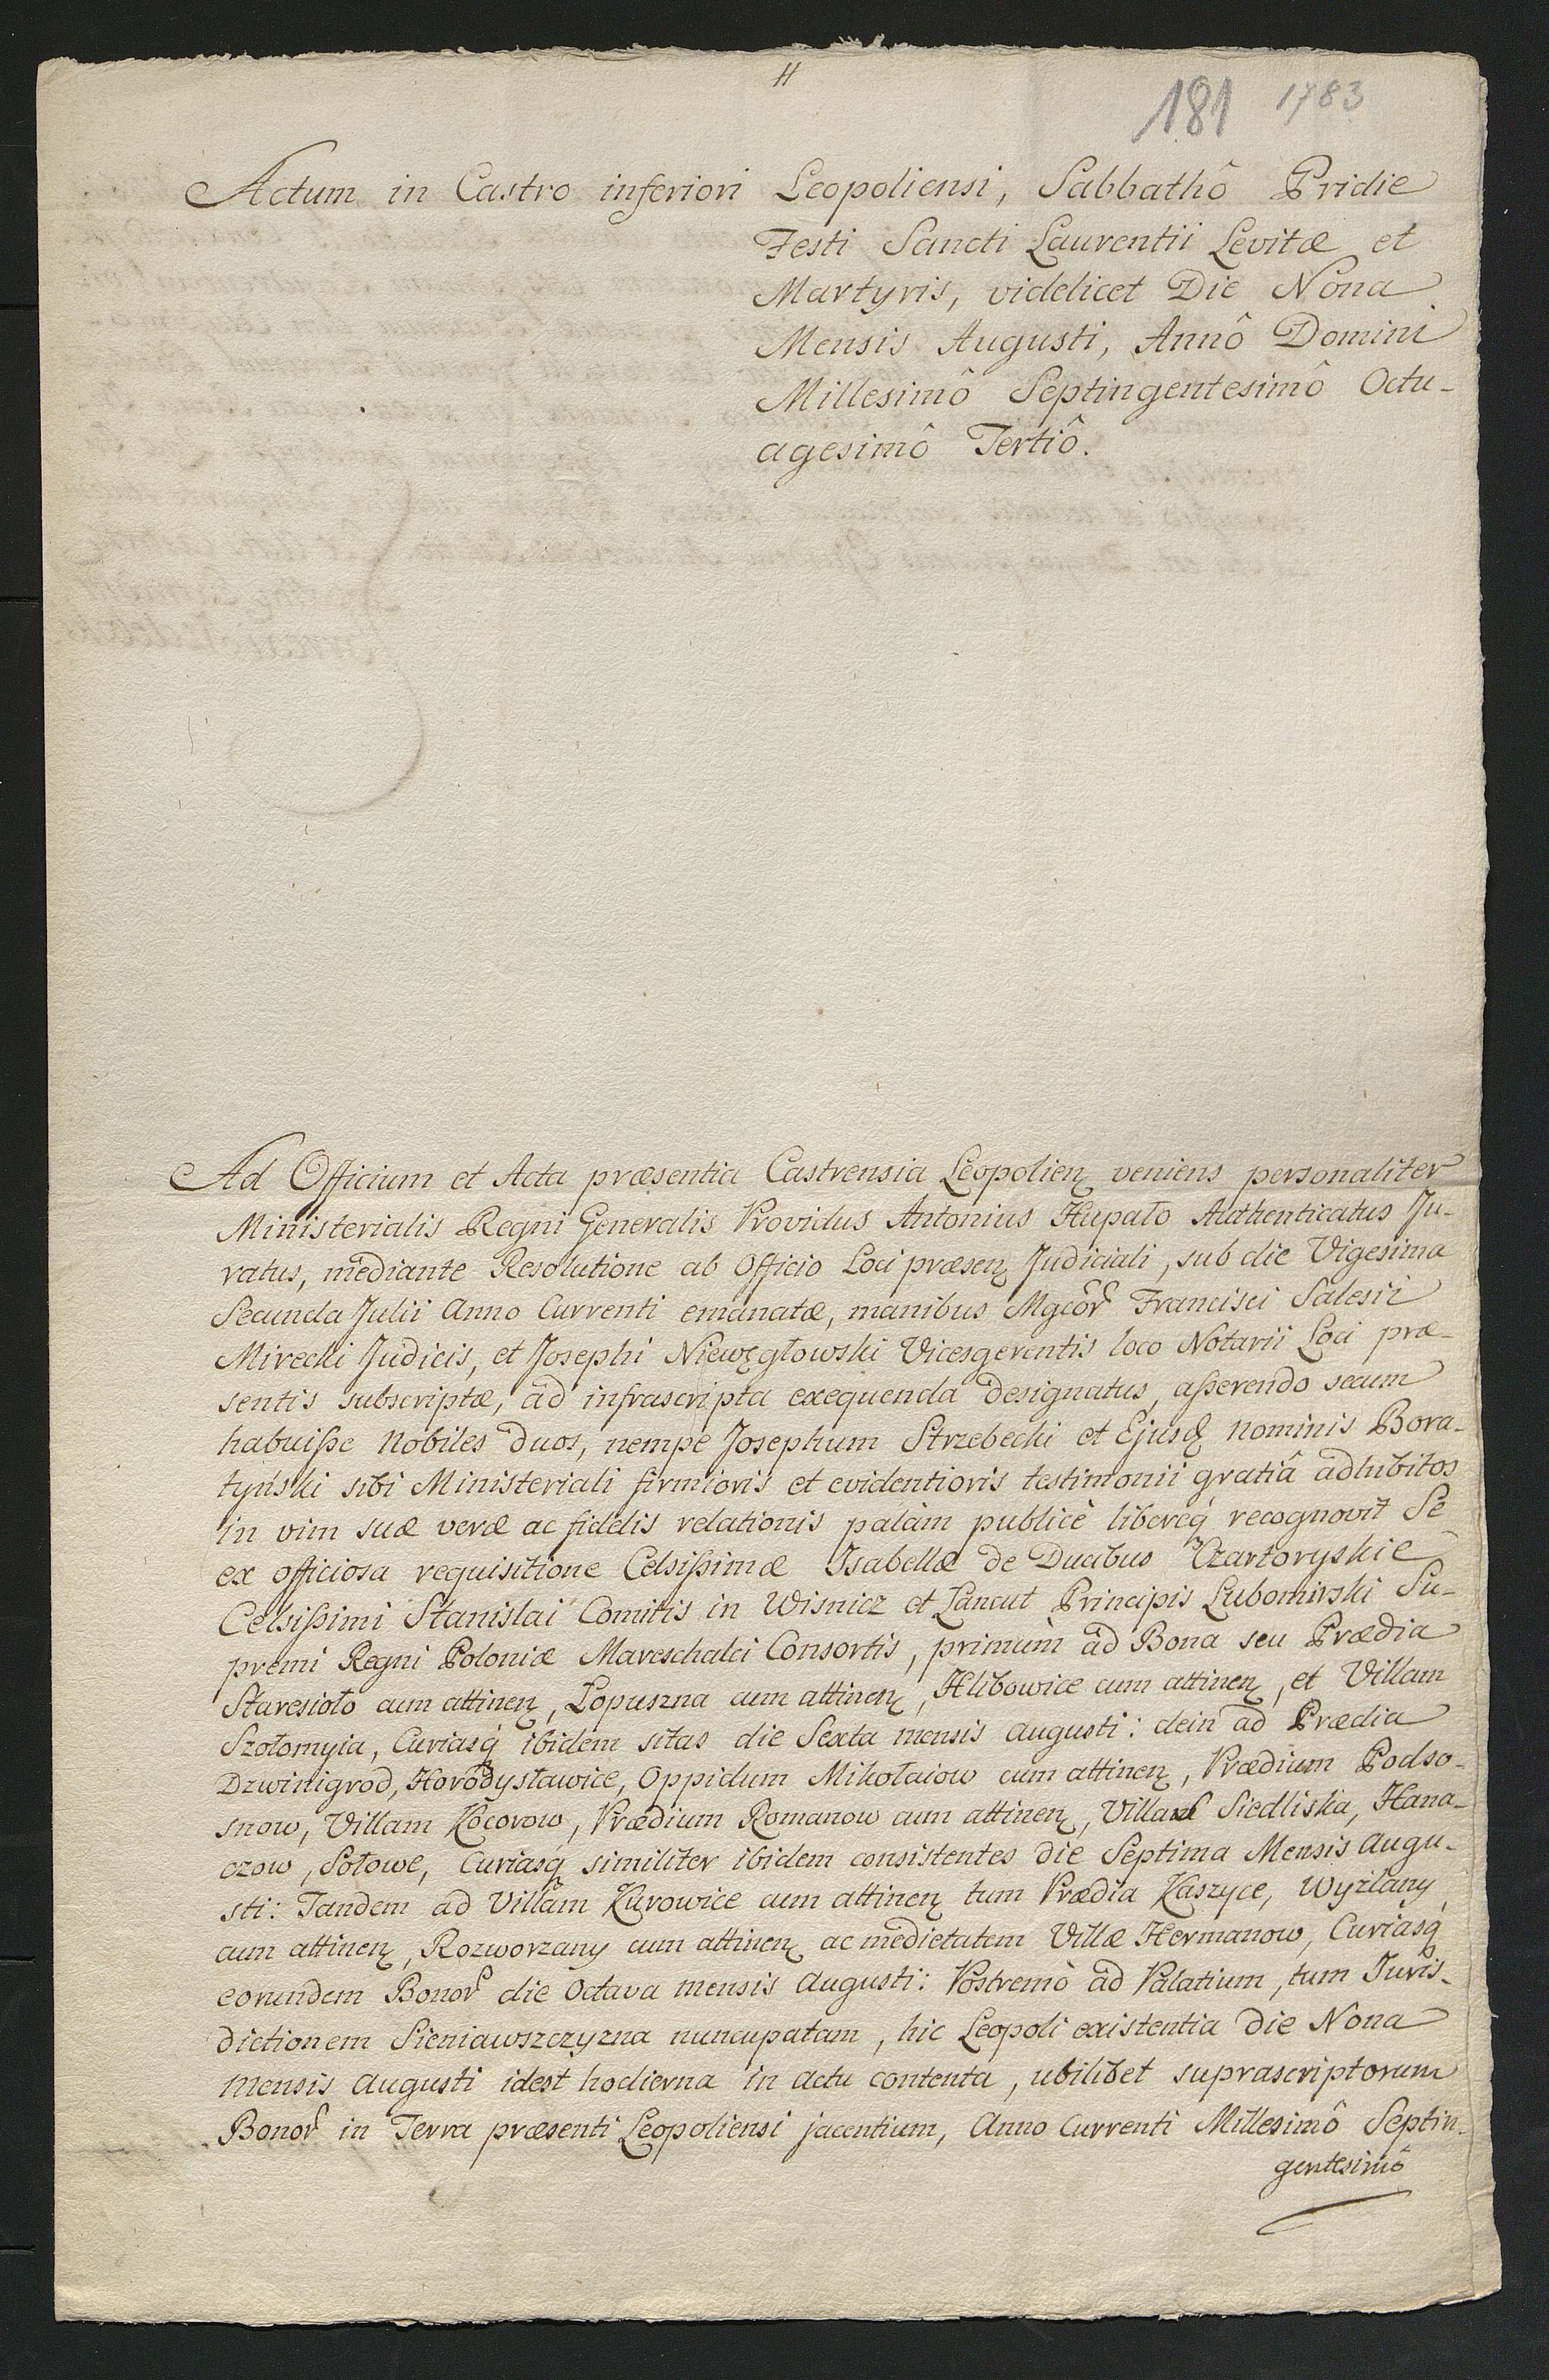 H
181 1783
Actum in Castro inferiori Leopoliensi, Sabbathô Pridie
Festi Sancti Laurentii Levitæ et
Martyris, videlicet Die Nona
Mensis Augusti, Annô Domini
Millesimô Septingentesimô Octu-
agesimô Tertiô.
Ad Officium et Acta præsentia Castrensia Leopolieñ veniens personaliter
Ministerialis Regni Generalis Providus Antonius Hupało Authenticatus Ju-
ratus, mediante Resolutione ab Officio Loci præseñ Judiciali, sub die Vigesima
Secunda Julii Anno Currenti emanatæ, manibus Mgcor̃ Francisci Salesii
Mirecki Judicis, et Josephi Niewęgłowski Vicesgerentis loco Notarii Loci præ-
sentis subscriptæ, ad infrascripta exequenda designatus, aßerendo secum
habuiße Nobiles duos, nempe Josephum Strzebecki et Ejusd nominis Bora-
tyński sibi Ministeriali firmioris et evidentioris testimonii gratiâ adhibitos
in vim suæ veræ ac fidelis relationis palàm publicè libereq́ recognovit Se
ex officiosa requisitione Celsißimæ Isabellæ de Ducibus Czartoryskie
Celsißimi Stanislai Comitis in Wisnicz et Łancut Principis Lubomirski Su-
premi Regni Poloniæ Mareschalci Consortis, primùm ad Bona seu Prædia
Staresioło cum attineñ, Łopuszna cum attineñ, Hlibowice cum attineñ, et Villam
Szołomyia, Curiasq́ ibidem sitas die Sexta mensis Augusti: dein ad Prædia
Dzwinigrod, Horodysławice, Oppidum Mikołaiow cum attineñ, Prædium Podso-
snow, Villam Kocorow, Prædium Romanow cum attineñ, Villas Siedliska, Hana-
czow, Sołowe, Curiasq́ similiter ibidem consistentes die Septima Mensis Augu-
sti: Tandem ad Villam Kurowice cum attineñ tum Prædia Kaszyce, Wyżlany
cum attineñ, Rozworzany cum attineñ ac medietatem Villæ Hermanow, Curiasq́
eorundem Bonor̃ die Octava mensis Augusti: Postremò ad Palatium, tum Juris-
dictionem Sieniawszczyzna nuncupatam, hic Leopoli existentia die Nona
Mensis Augusti idest hodierna in actu contenta, ubilibet suprascriptorum
Bonor̃ in Terra præsenti Leopoliensi jacentium, Anno Currenti Millesimô Septin-
gentesimô